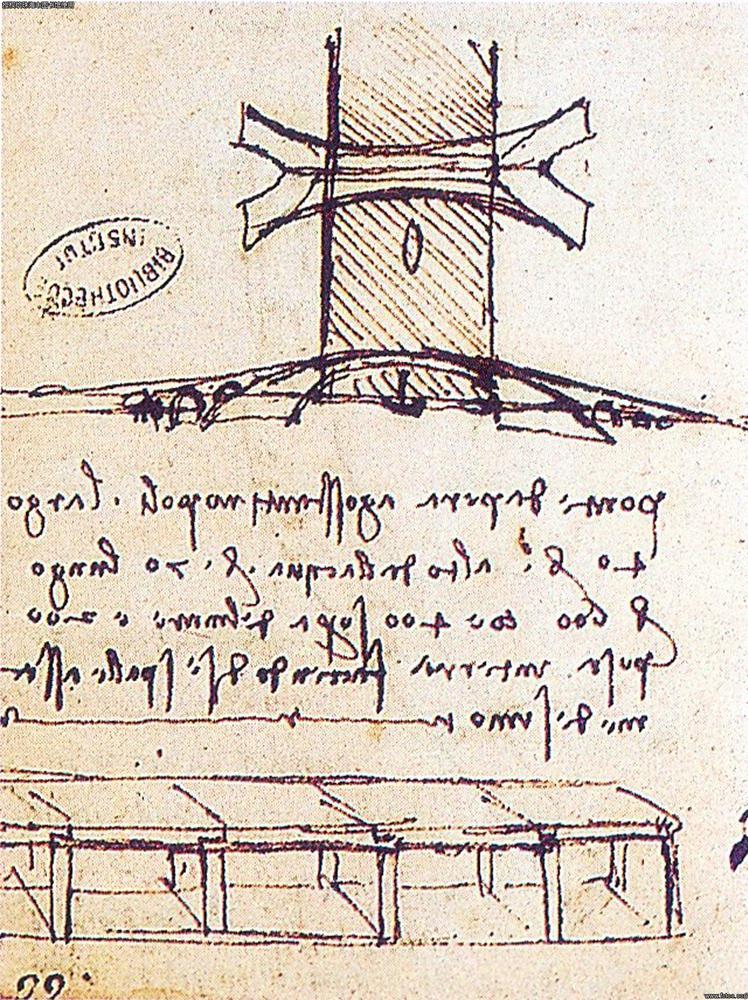 BIBLIOTHEC
INSTITUT
ponte da pera a gosstantinopoli . largo
40 br alto dallacqua br 70 lungo
br 600 coe 400 sopra del mare e 200
posa in terra faciendo di se spalle asse
medesimo